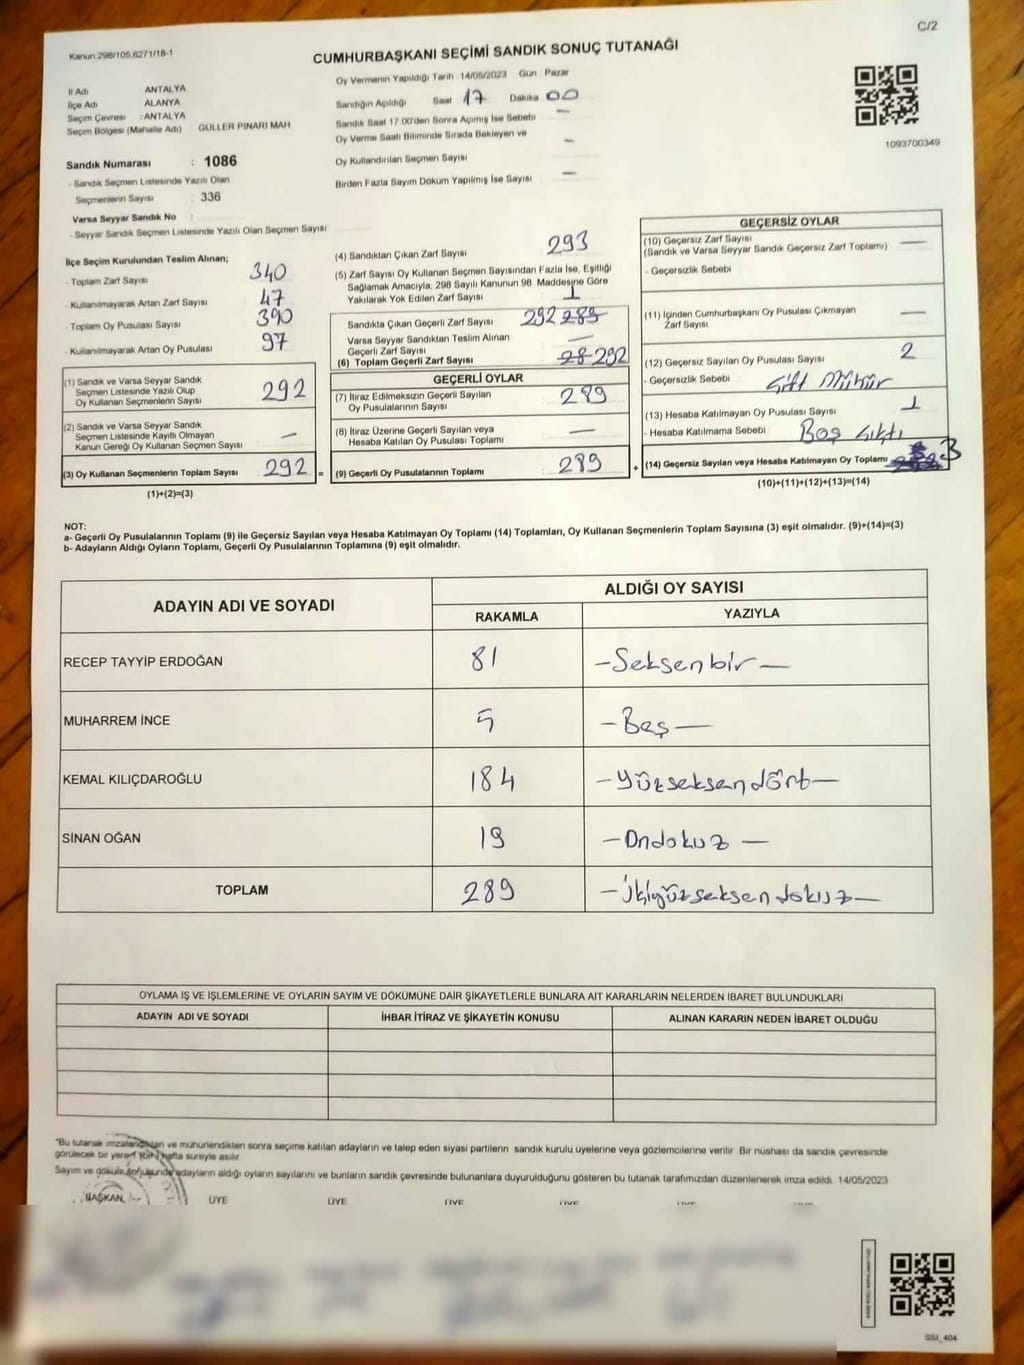 C/2
Kanun:298/105,6271/18-1
CUMHURBAŞKANI SEÇİMİ SANDIK SONUÇ TUTANAĞI
İl Adı ANTALYA
İlçe Adı ALANYA
Seçim Çevresi : ANTALYA
Seçim Bölgesi (Mahalle Adı) GÜLLER PINARI MAH
Sandık Numarası : 1086
- Sandık Seçmen Listesinde Yazılı Olan
Seçmenlerin Sayısı : 336
Varsa Seyyar Sandık No :
- Seyyar Sandık Seçmen Listesinde Yazılı Olan Seçmen Sayısı
Oy Vermenin Yapıldığı Tarih 14/05/2023 Gün : Pazar
Sandığın Açıldığı Saat 17 Dakika 00
Sandık Saat 17:00'den Sonra Açımış İse Sebebi —
Oy Verme Saati Bitiminde Sırada Bekleyen ve
Oy Kullandırılan Seçmen Sayısı —
Birden Fazla Sayım Döküm Yapılmış İse Sayısı —
1093700349
İlçe Seçim Kurulundan Teslim Alınan;
- Toplam Zarf Sayısı 340
- Kullanılmayarak Artan Zarf Sayısı 47
- Toplam Oy Pusulası Sayısı 390
- Kullanılmayarak Artan Oy Pusulası 97
(1) Sandık ve Varsa Seyyar Sandık
Seçmen Listesinde Yazılı Olup
Oy Kullanan Seçmenlerin Sayısı 292
(2) Sandık ve Varsa Seyyar Sandık
Seçmen Listesinde Kayıtlı Olmayan
Kanun Gereği Oy Kullanan Seçmen Sayısı —
(3) Oy Kullanan Seçmenlerin Toplam Sayısı 292 =
(1)+(2)=(3)
(4) Sandıktan Çıkan Zarf Sayısı 293
(5) Zarf Sayısı Oy Kullanan Seçmen Sayısından Fazla İse, Eşitliği
Sağlamak Amacıyla, 298 Sayılı Kanunun 98. Maddesine Göre
Yakılarak Yok Edilen Zarf Sayısı 1
Sandıkta Çıkan Geçerli Zarf Sayısı 292 289
Varsa Seyyar Sandıktan Teslim Alınan
Geçerli Zarf Sayısı —
(6) Toplam Geçerli Zarf Sayısı 28 292
GEÇERLİ OYLAR
(7) İtiraz Edilmeksizin Geçerli Sayılan
Oy Pusulalarının Sayısı 289
(8) İtiraz Üzerine Geçerli Sayılan veya
Hesaba Katılan Oy Pusulası Toplamı —
(9) Geçerli Oy Pusulalarının Toplamı 289 +
GEÇERSİZ OYLAR
(10) Geçersiz Zarf Sayısı
(Sandık ve Varsa Seyyar Sandık Geçersiz Zarf Toplamı) —
- Geçersizlik Sebebi
(11) İçinden Cumhurbaşkanı Oy Pusulası Çıkmayan
Zarf Sayısı —
(12) Geçersiz Sayılan Oy Pusulası Sayısı 2
- Geçersizlik Sebebi Çift Mühür
(13) Hesaba Katılmayan Oy Pusulası Sayısı 1
- Hesaba Katılmama Sebebi Boş çıktı
(14) Geçersiz Sayılan veya Hesaba Katılmayan Oy Toplamı 3
(10)+(11)+(12)+(13)=(14)
NOT:
a- Geçerli Oy Pusulalarının Toplamı (9) ile Geçersiz Sayılan veya Hesaba Katılmayan Oy Toplamı (14) Toplamları, Oy Kullanan Seçmenlerin Toplam Sayısına (3) eşit olmalıdır. (9)+(14)=(3)
b- Adayların Aldığı Oyların Toplamı, Geçerli Oy Pusulalarının Toplamına (9) eşit olmalıdır.
ADAYIN ADI VE SOYADI ALDIĞI OY SAYISI
RAKAMLA YAZIYLA
RECEP TAYYİP ERDOĞAN 81 —Seksenbir—
MUHARREM İNCE 5 —Beş—
KEMAL KILIÇDAROĞLU 184 —Yüzseksendört—
SİNAN OĞAN 19 —Ondokuz—
TOPLAM 289 —İkiyüzseksendokuz—
OYLAMA İŞ VE İŞLEMLERİNE VE OYLARIN SAYIM VE DÖKÜMÜNE DAİR ŞİKAYETLERLE BUNLARA AİT KARARLARIN NELERDEN İBARET BULUNDUKLARI
ADAYIN ADI VE SOYADI İHBAR İTİRAZ VE ŞİKAYETİN KONUSU ALINAN KARARIN NEDEN İBARET OLDUĞU
*Bu tutanak imzalandıktan ve mühürlendikten sonra seçime katılan adayların ve talep eden siyasi partilerin sandık kurulu üyelerine veya gözlemcilerine verilir. Bir nüshası da sandık çevresinde
görülecek bir yere 1 (bir) hafta süreyle asılır.
Sayım ve döküm sonucunda adayların aldığı oyların sayılarını ve bunların sandık çevresinde bulunanlara duyurulduğunu gösteren bu tutanak tarafımızdan düzenlenerek imza edildi. 14/05/2023
BAŞKAN ÜYE ÜYE ÜYE ÜYE ÜYE ÜYE
SSI_404